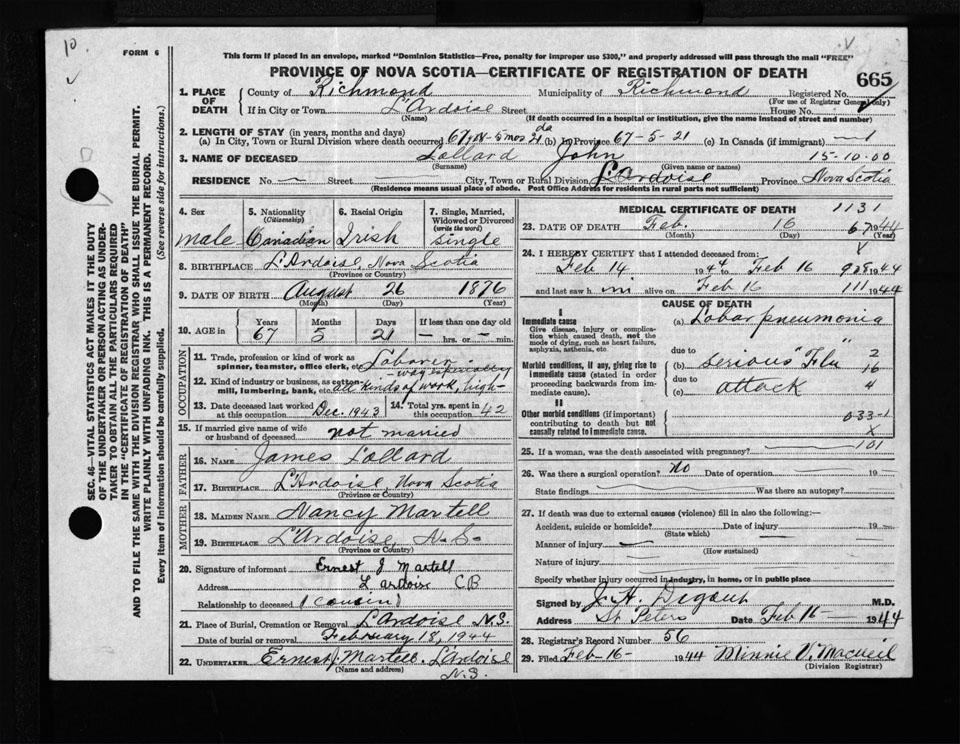 10
FORM 6
This form if placed in an envelope, marked "Dominion Statistics—Free, penalty for improper use $300," and properly addressed will pass through the mail "FREE"
PROVINCE OF NOVA SCOTIA—CERTIFICATE OF REGISTRATION OF DEATH
665
1. PLACE OF DEATH
County of Richmond Municipality of Richmond Registered No.
(For use of Registrar General only)
If in City or Town L'Ardoise Street House No.
(Name) (If death occurred in a hospital or institution, give the name instead of street and number)
2. LENGTH OF STAY (in years, months and days)
(a) In City, Town or Rural Division where death occurred 67 5 mos 21 da (b) In Province 67-5-21 (c) In Canada (if immigrant)
3. NAME OF DECEASED Lollard John 15-10.00
(Surname) (Given name or names)
RESIDENCE No. — Street City, Town or Rural Division L'Ardoise Province Nova Scotia
(Residence means usual place of abode. Post Office Address for residents in rural parts not sufficient)
4. Sex
male
5. Nationality
(Citizenship)
Canadian
6. Racial Origin
Irish
7. Single, Married, Widowed or Divorced
(write the word)
single
8. BIRTHPLACE L'Ardoise, Nova Scotia
(Province or Country)
9. DATE OF BIRTH August 26 1876
(Month) (Day) (Year)
10. AGE in
Years Months Days If less than one day old
67 5 21 — hrs. or — min.
OCCUPATION
11. Trade, profession or kind of work as spinner, teamster, office clerk, etc. Laborer
12. Kind of industry or business, as cotton mill, lumbering, bank, etc. all kinds of work, high-
way especially
13. Date deceased last worked at this occupation Dec. 1943
14. Total yrs. spent in this occupation 42
15. If married give name of wife or husband of deceased not married
FATHER
16. NAME James Lollard
17. BIRTHPLACE L'Ardoise, Nova Scotia
(Province or Country)
MOTHER
18. MAIDEN NAME Nancy Martell
19. BIRTHPLACE L'Ardoise, N.S.
(Province or Country)
20. Signature of informant Ernest J Martell
Address L ardoise CB
Relationship to deceased (cousin)
21. Place of Burial, Cremation or Removal L'Ardoise N.S.
Date of burial or removal February 18, 1944
22. UNDERTAKER Ernest J. Martell L'Ardoise
N.S.
(Name and address)
MEDICAL CERTIFICATE OF DEATH 1131
23. DATE OF DEATH Feb. 16 1944
(Month) (Day) (Year)
24. I HEREBY CERTIFY that I attended deceased from:
Feb 14 1944 to Feb 16 1944
and last saw h im alive on Feb 16 1944
CAUSE OF DEATH
I
Immediate cause
Give disease, injury or complication which caused death, not the mode of dying, such as heart failure, asphyxia, asthenia, etc.
(a) Lobar pneumonia
due to
Morbid conditions, if any, giving rise to immediate cause (stated in order proceeding backwards from immediate cause).
(b) serious "Flu"
due to
(c) attack
2
16
4
II
Other morbid conditions (if important) contributing to death but not causally related to immediate cause.
033-1
X
25. If a woman, was the death associated with pregnancy? 101
26. Was there a surgical operation? No Date of operation 19
State findings Was there an autopsy?
27. If death was due to external causes (violence) fill in also the following:—
Accident, suicide or homicide? Date of injury 19
(State which)
Manner of injury
(How sustained)
Nature of injury
Specify whether injury occurred in industry, in home, or in public place
Signed by J. H. Digout M.D.
Address St Peters Date Feb 16 — 1944
28. Registrar's Record Number 56
29. Filed Feb-16- 1944 Minnie V. Macneil
(Division Registrar)
SEC. 46—VITAL STATISTICS ACT MAKES IT THE DUTY
OF THE UNDERTAKER OR PERSON ACTING AS UNDER-
TAKER TO OBTAIN ALL THE PARTICULARS REQUIRED
IN THE "CERTIFICATE OF REGISTRATION OF DEATH"
AND TO FILE THE SAME WITH THE DIVISION REGISTRAR WHO SHALL ISSUE THE BURIAL PERMIT.
WRITE PLAINLY WITH UNFADING INK. THIS IS A PERMANENT RECORD.
Every item of information should be carefully supplied. (See reverse side for instructions.)